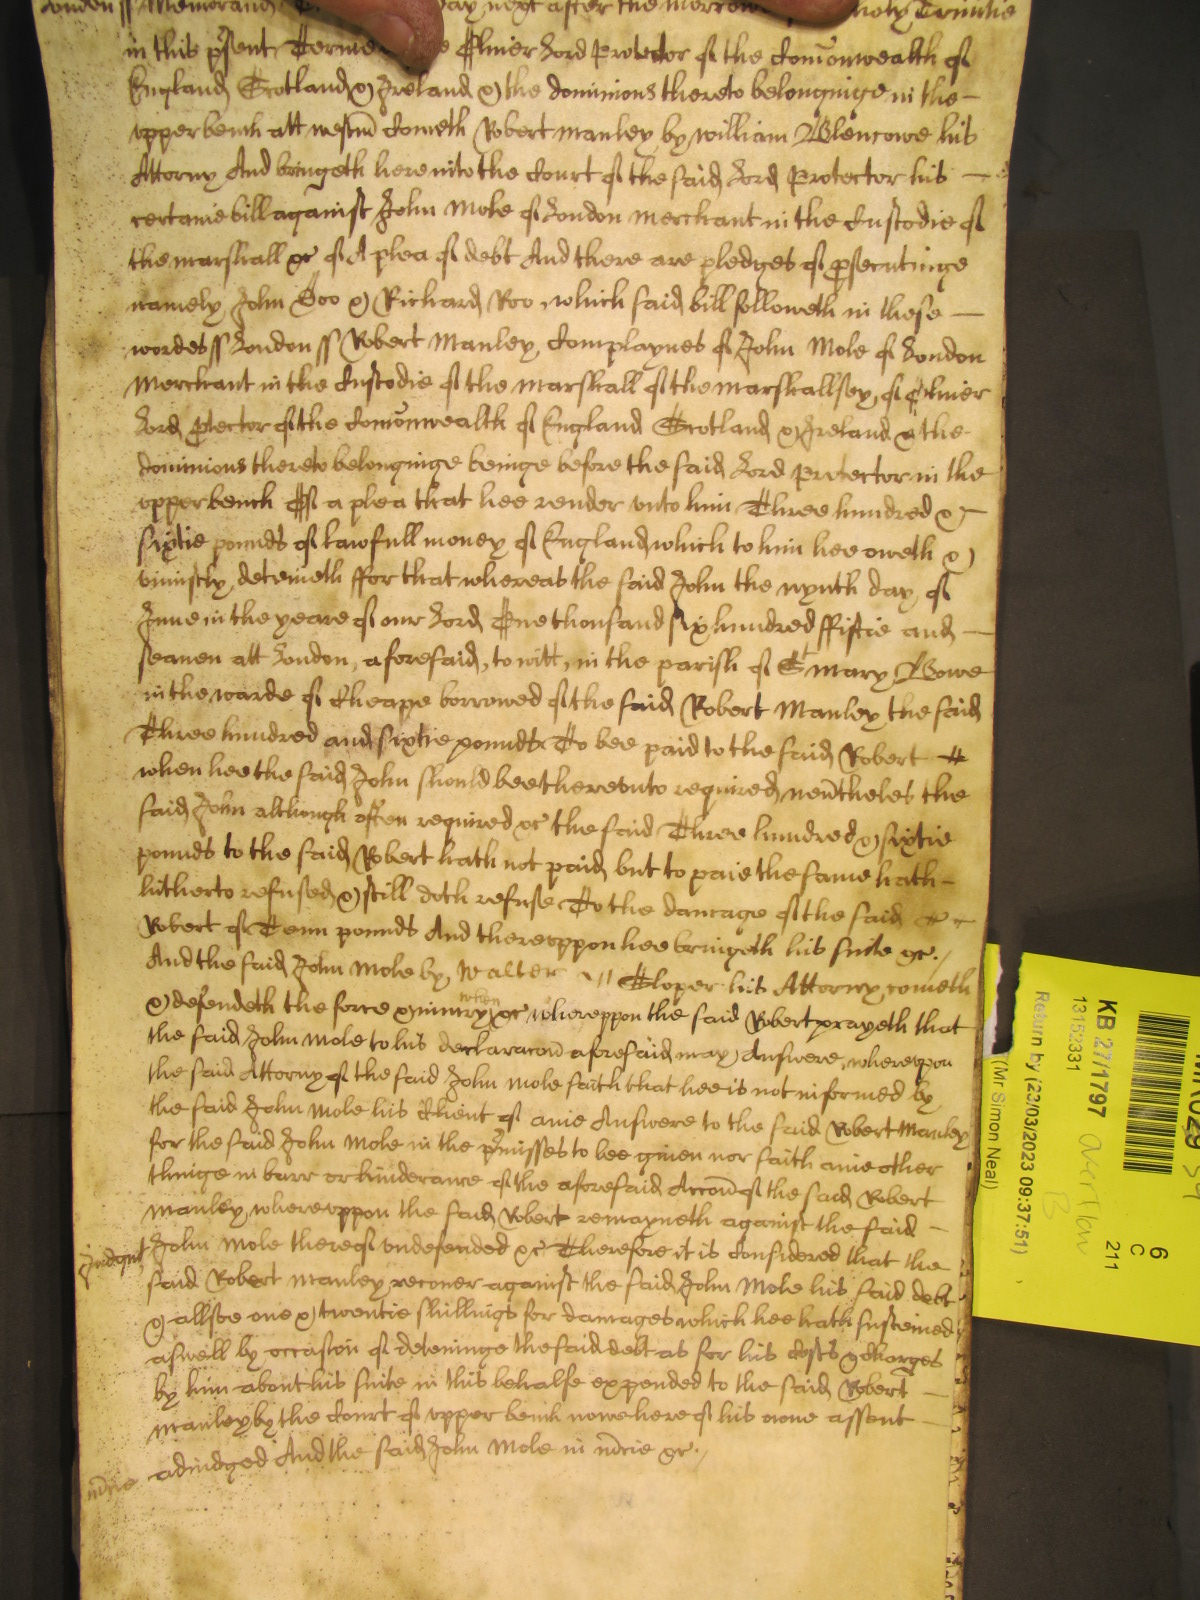 London ss Memorand day next after the morrow holy Trinitie
in this psent Terme Oliver Lord Protector of the Comonwealth of
England Scotland & Ireland & the dominions thereto belonginge in the
upper bench att westm Cometh Robert Manley by William Blencowe his
Attorny And bringeth here into the Court of the said Lord Protector his
certaine bill against John Mole of London Merchant in the Custodie of
the marshall &c of A plea of debt And there are pledges of psecutinge
namely John Doo & Richard Roo which said bill followeth in these
wordes ss London ss Robert Manley Complaynes of John Mole of London
Merchant in the Custodie of the marshall of the marshallsey of Oliver
Lord ptector of the Comonwealth of England Scotland & Ireland & the
dominions thereto belonginge beinge before the said Lord Protector in the
upper bench Of a plea that hee render unto him Three hundred &
sixtie pounds of lawfull money of England which to him hee oweth &
uniustly deteineth ffor that whereas the said John the nynth day of
June in the yeare of our Lord One thousand six hundred ffiftie and
seaven att London aforesaid, to witt, in the parish of St mary Bowe
in the warde of Cheape borrowed of the said Robert Manley the said
Three hundred and sixtie pounds To bee paid to the said Robert
when hee the said John should bee thereunto required, nevtheles the
said John although often required &c the said Three hundred & sixtie
pounds to the said Robert hath not paid but to paie the same hath
hitherto refused & still doth refuse To the damage of the said
Robert of Tenn pounds And thereuppon hee bringeth his suite &c.
And the said John Mole by Walter Cloper his Attorny cometh
& defendeth the force & iniury when &c whereuppon the said Robert prayeth that
the said John Mole to his declaracon aforesaid may Answere, whereupon
the said Attorny of the said John Mole saith that hee is not informed by
the said John Mole his Client of anie Answere to the said Robert Manley
for the said John Mole in the pmisses to bee given nor saith anie other
thinge in barr or hinderance of the aforesaid Accon of the said Robert
Manley whereuppon the said Robert remayneth against the said
Judgmt John Mole thereof undefended &c Therefore it is Considered that the
said Robert Manley recover against the said John Mole his said debt
& allsoe one & twentie shillings for damages which hee hath susteined
aswell by occasion of deteininge the said debt as for his Costs & charges
by him about his suite in this behalfe expended to the said Robert
Manley by the Court of upper bench nowe here of his owne assent
adiudged And the said John Mole in mcie &c.
mcie
6
C
211
KB 27/1797
13152331
Return by (23/03/2023 09:37:51)
(Mr Simon Neal)